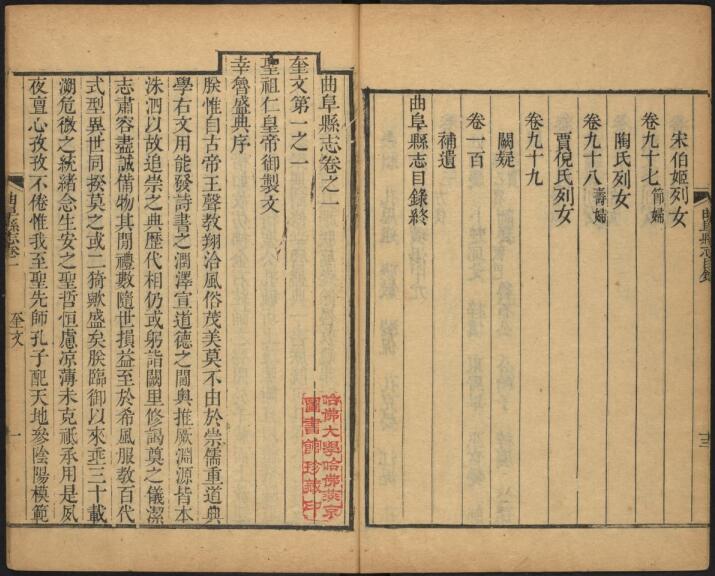 宋伯姬列女
卷九十七節婦
陶氏列女
卷九十八壽婦
賈倪氏列女
卷九十九
闕疑
卷一百
補遺
曲阜縣志目錄終
曲阜縣志目錄
十三
曲阜縣志卷之一
奎文第一之一
聖祖仁皇帝御製文
幸魯盛典序
朕惟自古帝王聲教翔洽風俗茂美莫不由於崇儒重道典
學右文用能發詩書之潤澤宣道德之閫奧推厥淵源皆本
洙泗以故追崇之典歷代相仍或躬詣闕里修謁奠之儀潔
志肅容盡誠備物其閒禮數隨世損益至於希風服教百代
式型異世同揆莫之或二猗歟盛矣朕臨御以來垂三十載
溯危微之統緒念生安之聖哲恒慮凉薄未克祗承用是夙
夜亶心孜孜不倦惟我至聖先師孔子配天地參陰陽模範
曲阜縣志卷一
奎文
一
哈佛大學哈佛燕京
圖書館珍藏印